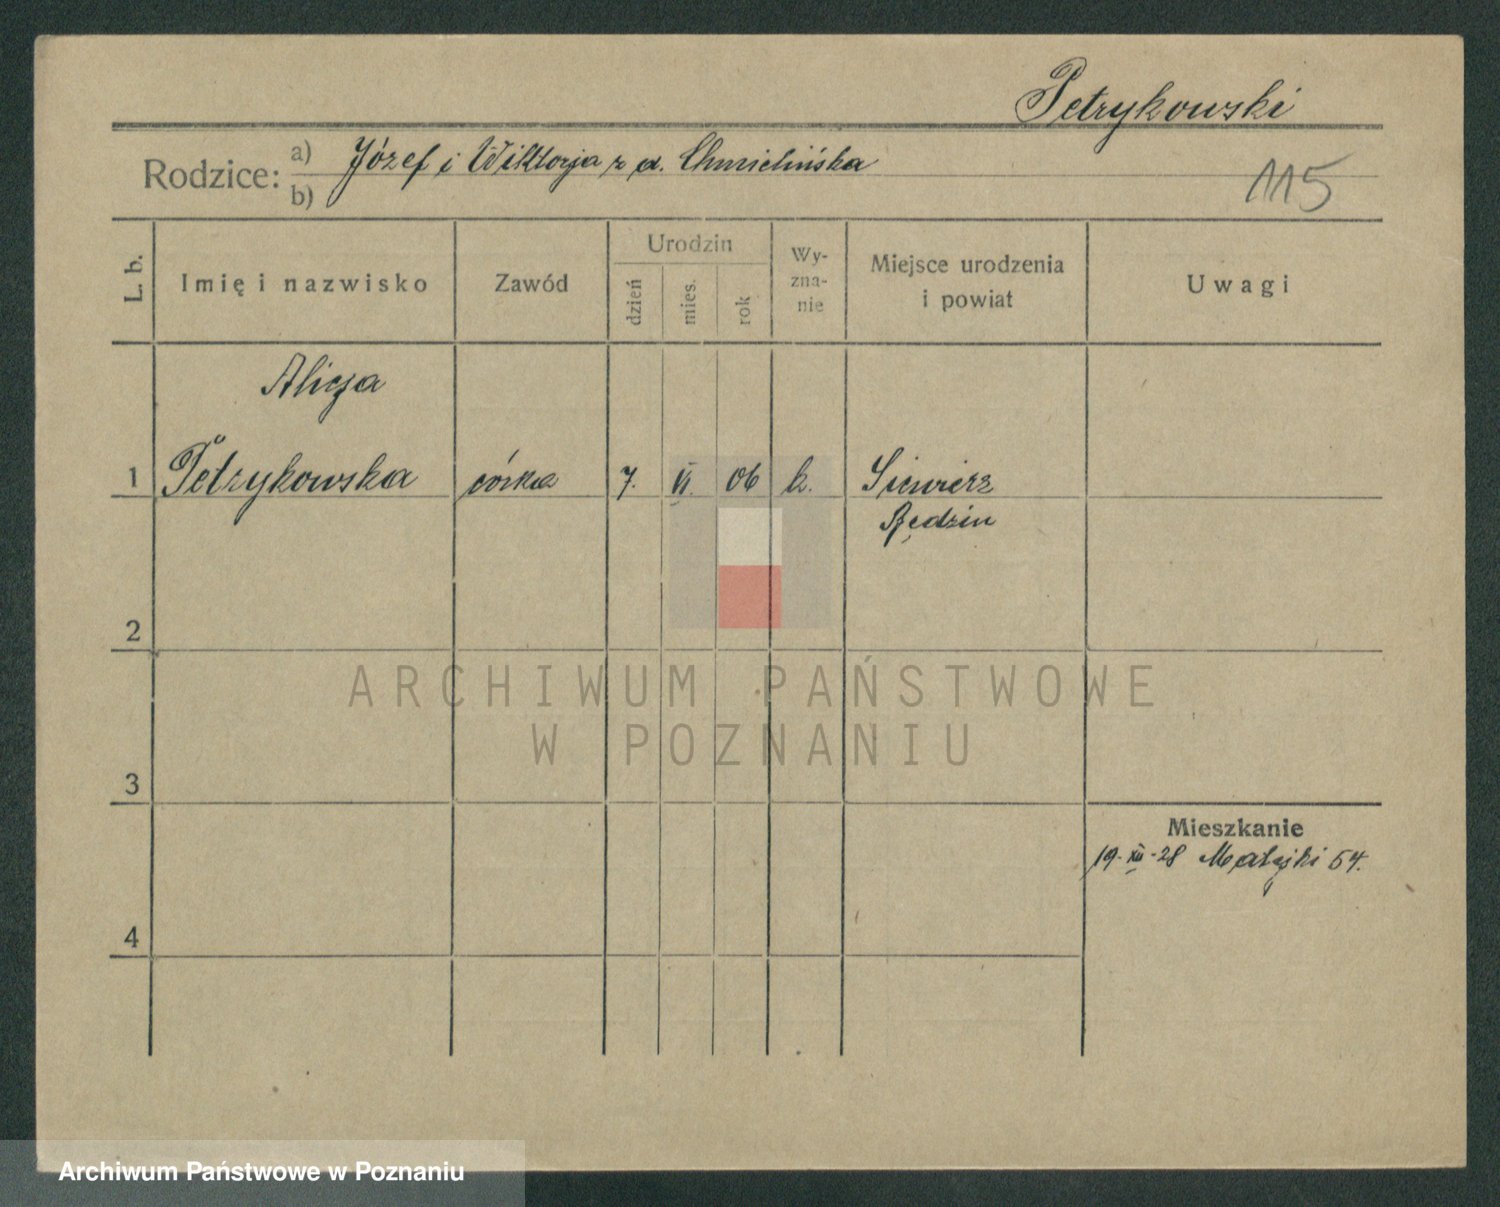 Petrykowski
Rodzice: a) Józef i Wiktorja z d. Chmielińska
b)
115
L. b.
Imię i nazwisko
Zawód
Urodzin
dzień
mies.
rok
Wy-
zna-
nie
Miejsce urodzenia
i powiat
Uwagi
Alicja
1 Petrykowska córka 7. VI. 06 k. Siewierz
Będzin
2
3
4
Mieszkanie
19. XII. 28 Matejki 54.
ARCHIWUM PAŃSTWOWE
W POZNANIU
Archiwum Państwowe w Poznaniu